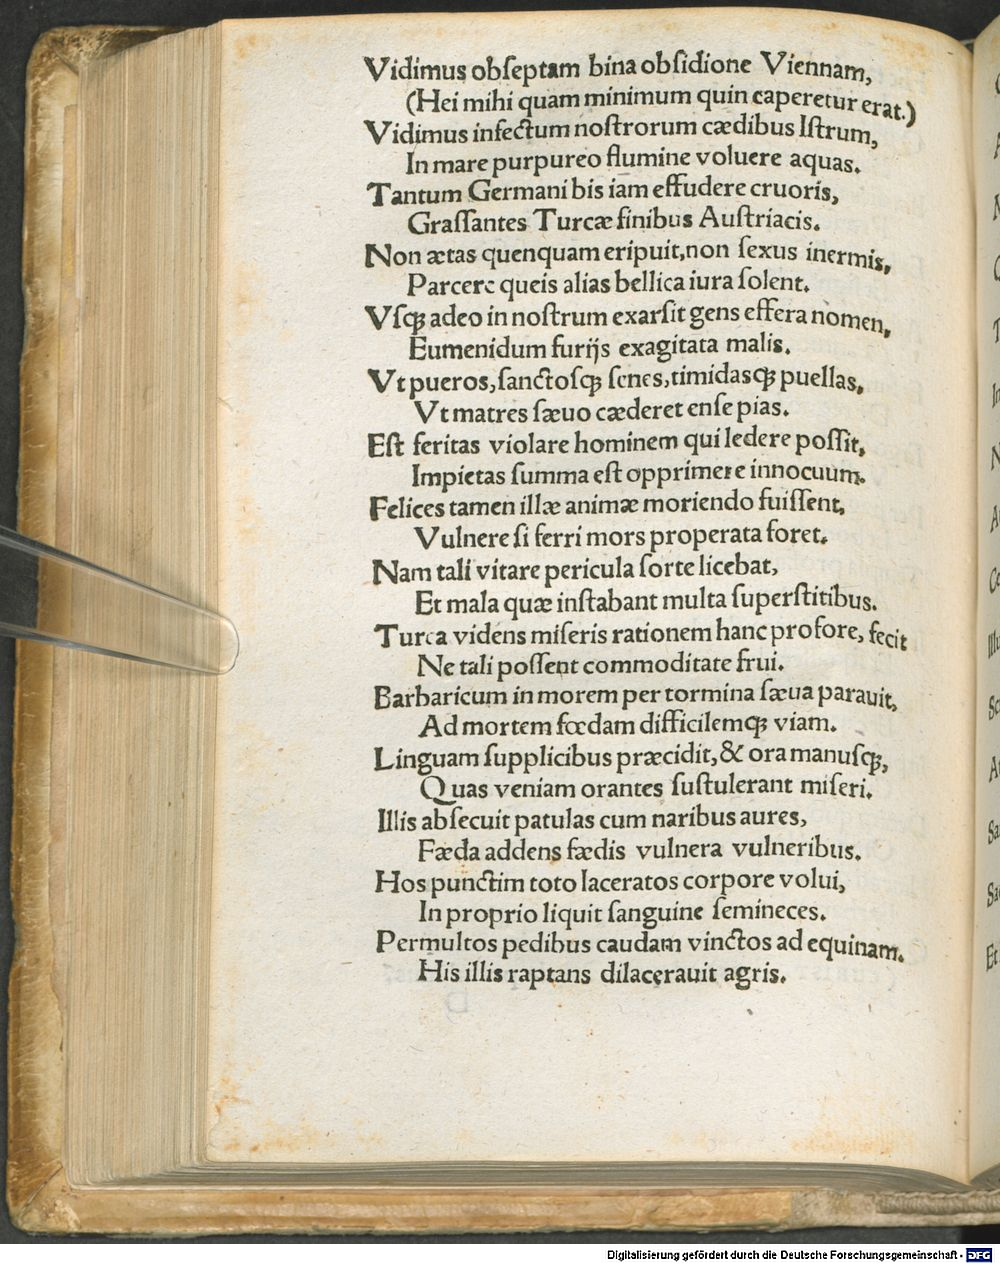 Vidimus obſeptam bina obſidione Viennam,
(Hei mihi quam minimum quin caperetur erat.)
Vidimus infectum noſtrorum cædibus Iſtrum,
In mare purpureo flumine voluere aquas.
Tantum Germani bis iam effudere cruoris,
Graſſantes Turcæ finibus Auſtriacis.
Non ætas quenquam eripuit, non ſexus inermis,
Parcere queis alias bellica iura ſolent.
Vſqꝫ adeo in noſtrum exarſit gens effera nomen,
Eumenidum furijs exagitata malis.
Vt pueros, ſanctoſqꝫ ſenes, timidasqꝫ puellas,
Vt matres ſæuo cæderet enſe pias.
Eſt feritas violare hominem qui ledere poſſit,
Impietas ſumma eſt opprimere innocuum.
Felices tamen illæ animæ moriendo fuiſſent,
Vulnere ſi ferri mors properata foret.
Nam tali vitare pericula ſorte licebat,
Et mala quæ inſtabant multa ſuperſtitibus.
Turca videns miſeris rationem hanc profore, fecit
Ne tali poſſent commoditate frui.
Barbaricum in morem per tormina ſæua parauit,
Ad mortem fœdam difficilemqꝫ viam.
Linguam ſupplicibus præcidit, & ora manuſqꝫ,
Quas veniam orantes ſuſtulerant miſeri.
Illis abſecuit patulas cum naribus aures,
Fæda addens fædis vulnera vulneribus.
Hos punctim toto laceratos corpore volui,
In proprio liquit ſanguine ſemineces.
Permultos pedibus caudam vinctos ad equinam.
His illis raptans dilacerauit agris.
Digitalisierung gefördert durch die Deutsche Forschungsgemeinschaft - DFG